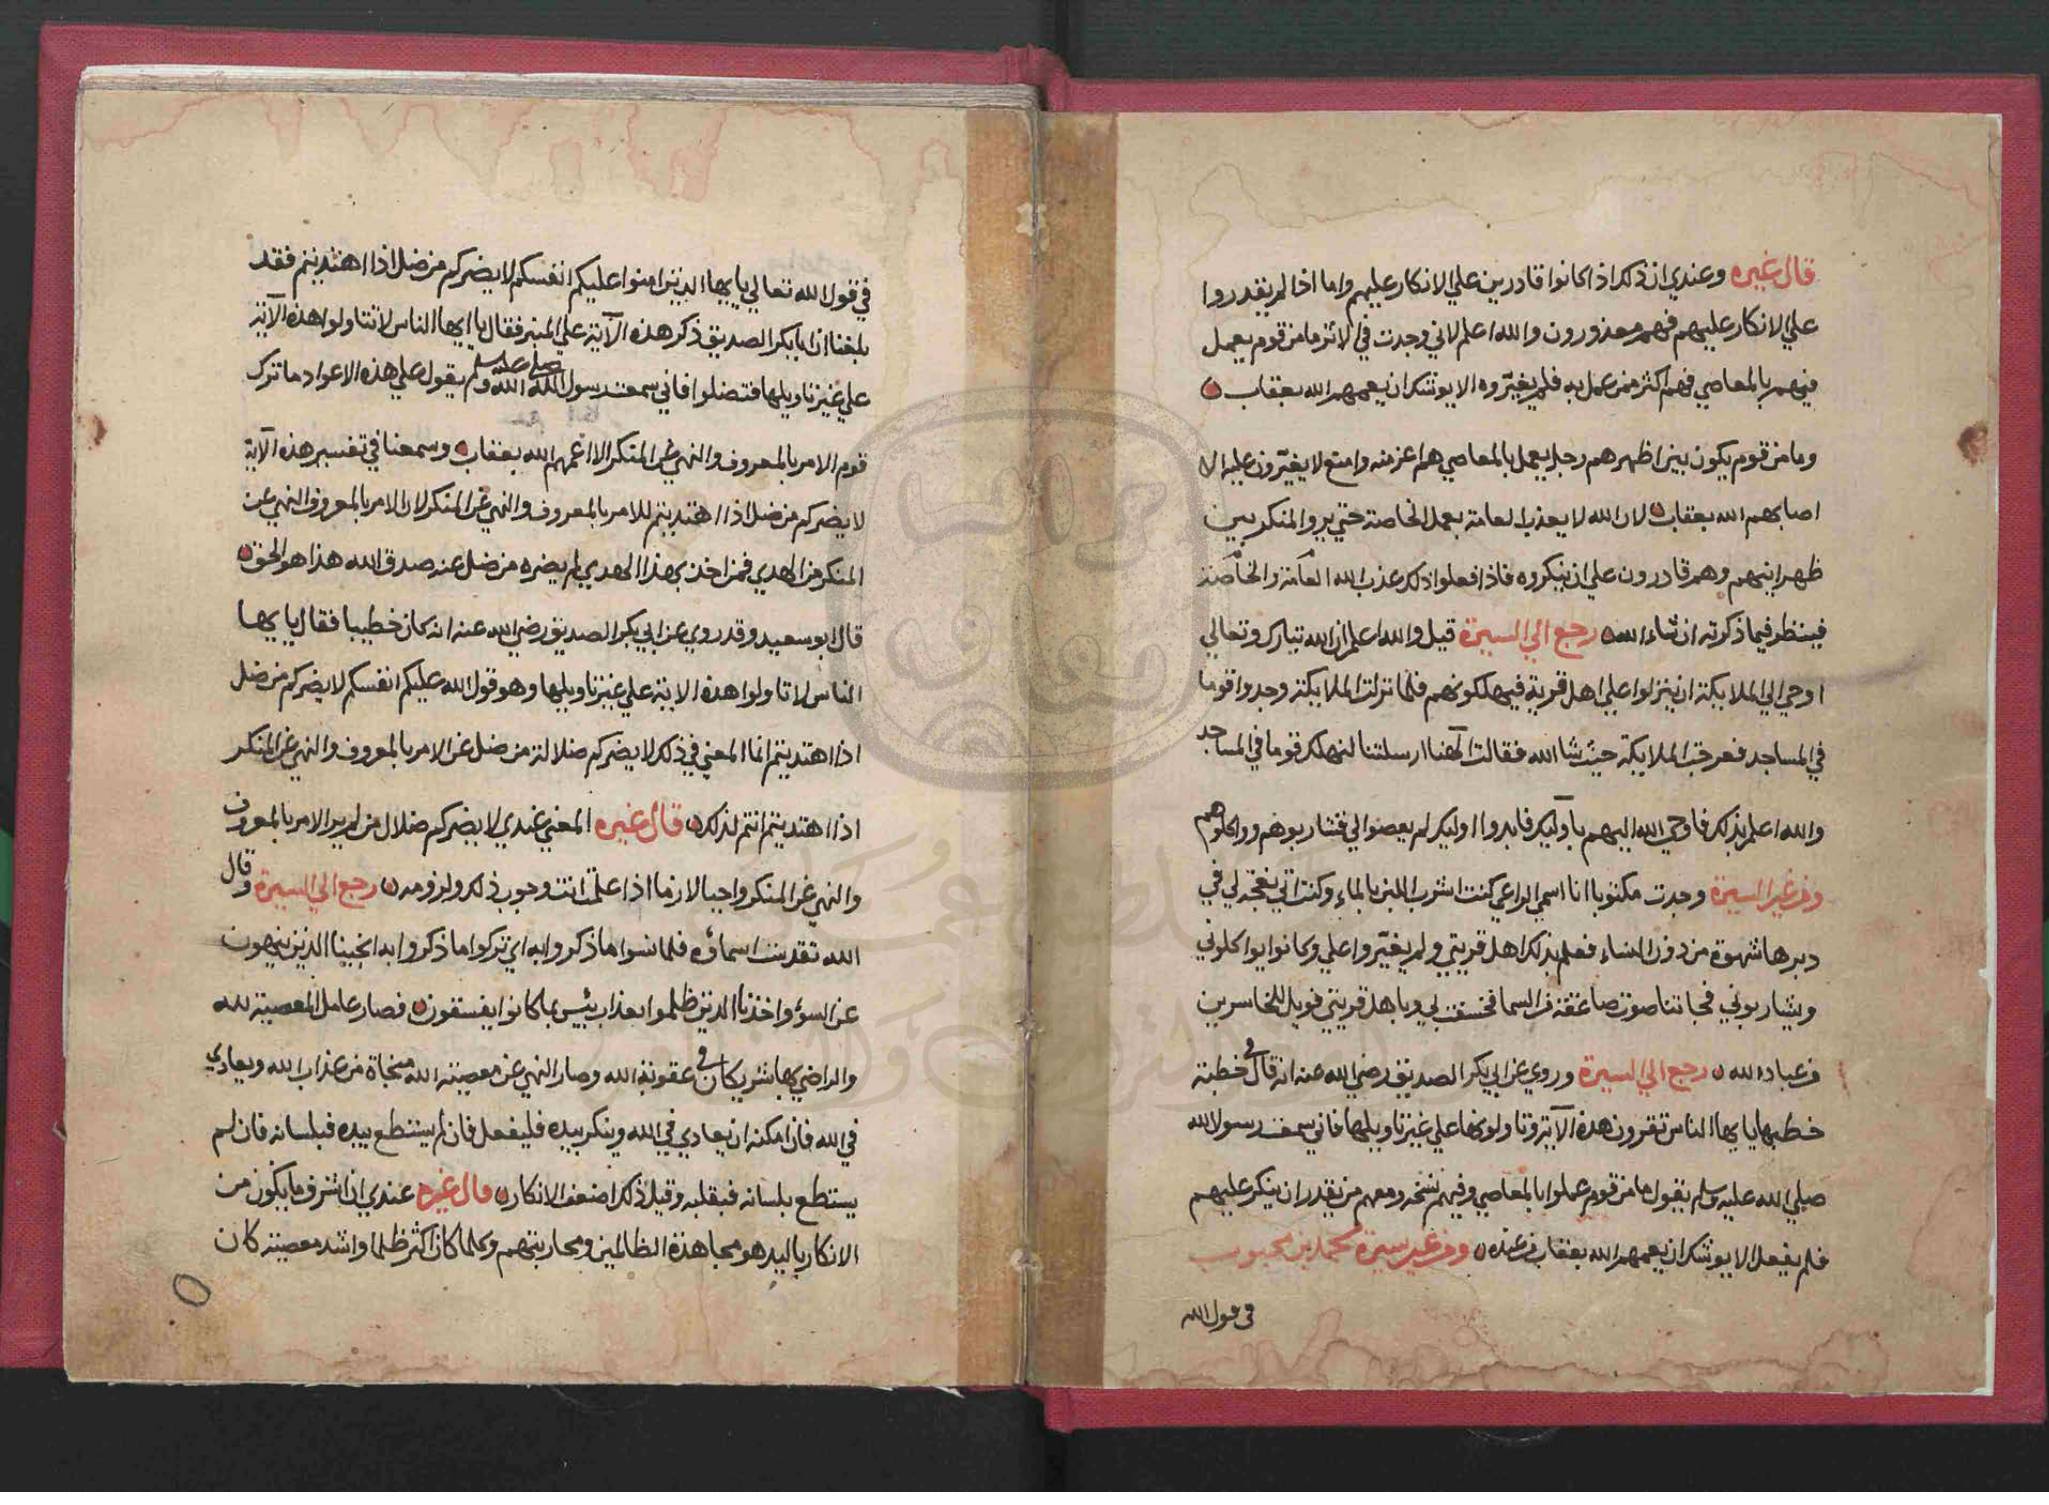 قال غيره وعندي ان ذلك اذا كانوا قادرين علي الانكار عليهم واما اذا لم يقدروا
علي الانكار عليهم فهم معذورون والله اعلم لاني وجدت في الاثر ما من قوم يعمل
فيهم بالمعاصي فهم اكثر ممن عمل به فلم يغيّروه الا يوشك ان يعمهم الله بعقاب
وما من قوم يكون بين اظهرهم رجل يعمل بالمعاصي هم اعز منه وامنع لا يغيّرون عليه الا
اصابهم الله بعقاب لان الله لا يعذب العامة بعمل الخاصة حتي يروا المنكر بين
ظهرانيهم وهم قادرون علي ان ينكروه فاذا فعلوا ذلك عذب الله العامة والخاصة
فينظر فيما ذكرته ان شاء الله رجع الي السيرة قيل والله اعلم ان الله تبارك وتعالي
اوحي الي الملايكة ان ينزلوا علي اهل قرية فيهلكونهم فلما نزلت الملايكة وجدوا قوما
في المساجد فعرجت الملايكة حيث شا الله فقالت الهنا ارسلتنا لنهلك قوما في المساجد
والله اعلم بذلك فاوحي الله اليهم باوليك فابدوا اوليك لم يعصوا لي فشاربوهم وواكلوهم
ومن غير السيرة وجدت مكتوبا انا اسمي الراعي كنت اشرب اللبن بالماء وكنت اتي نعجة لي في
دبرها شهوة من دون النساء فعلم بذلك اهل قريتي ولم يغيّروا علي وكانوا يواكلوني
ويشاربوني فجاتنا صوت صاعقة من السما فخسفت بي وباهل قريتي فويل للخاسرين
من عباد الله رجع الي السيرة وروي عن ابي بكر الصديق رضي الله عنه انه قال في خطبة
خطبها يا يها الناس تقرون هذه الآية وتاولونها علي غير تاويلها فاني سمعت رسول الله
صلي الله عليه وسلم يقول ما من قوم عملوا بالمعاصي وفيهم ومعهم من يقدر ان ينكر عليهم
فلم يفعل الا يوشك ان يعمهم الله بعقاب من عنده ومن غير سيرة محمد بن محبوب
في قول الله
في قول الله تعالي يا يها الذين امنوا عليكم انفسكم لا يضركم من ضل اذا اهتديتم فقد
بلغنا ان ابا بكر الصديق ذكر هذه الآية علي المنبر فقال يا ايها الناس لا تتاولوا هذه الآية
علي غير تاويلها فتضلوا فاني سمعت رسول الله صلي الله عليه وسلم يقول علي هذه الاعواد ما ترك
قوم الامر بالمعروف والنهي عن المنكر الا اعمهم الله بعقاب وسمعنا في تفسير هذه الآية
لا يضركم من ضل اذا اهتديتم للامر بالمعروف والنهي عن المنكر لان الامر بالمعروف والنهي عن
المنكر من الهدي فمن اخذ بهذا الهدي لم يضره من ضل عنه صدق الله هذا هو الحق
قال ابو سعيد وقد روي عن ابي بكر الصديق رضي الله عنه انه كان خطيبا فقال يا يها
الناس لا تاولوا هذه الاية علي غير تاويلها وهو قول الله عليكم انفسكم لا يضركم من ضل
اذا اهتديتم انما المعني في ذلك لا يضركم ضلالة من ضل عن الامر بالمعروف والنهي عن المنكر
اذا اهتديتم انتم لذلك قال غيره المعني عندي لا يضركم ضلال من لم ير الامر بالمعروف
والنهي عن المنكر واجبا لازما اذا علمت انت وجوب ذلك ولزومه رجع الي السيرة وقال
الله تقدست اسماؤه فلما نسوا ما ذكروا به اي تركوا ما ذكروا به انجينا الذين ينهون
عن السوؤ واخذنا الذين ظلموا بعذاب بئيس بما كانوا يفسقون فصار عامل المعصية لله
والراضي بها شريكان في عقوبة الله وصار النهي عن معصية الله منجاة من عذاب الله ويعادي
في الله فان امكنه ان يعادي في الله وينكر بيده فليفعل فان لم يستطع بيده فبلسانه فان لم
يستطع بلسانه فبقلبه وقيل ذلك اضعف الانكار قال غيره عندي ان اشرف ما يكون من
الانكار باليد هو مجاهدة الظالمين ومحاربتهم وكلما كان اكثر ظلما واشد معصية كان